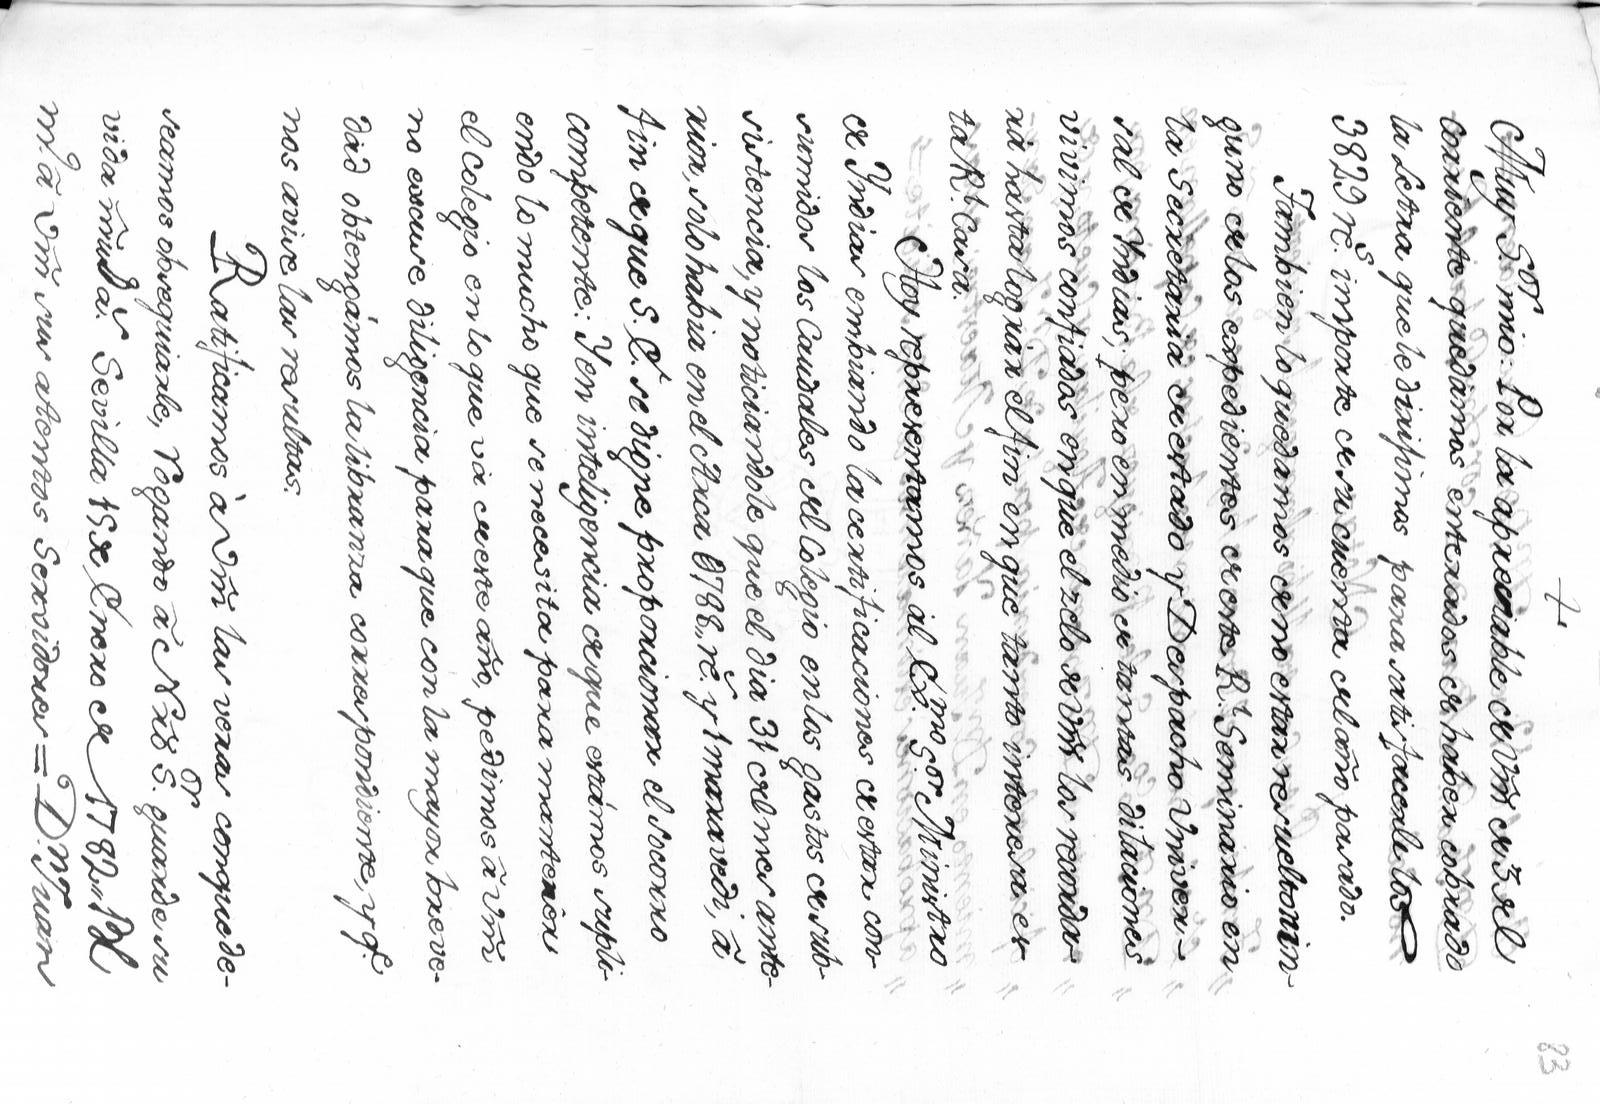 +
83
Muy Sor. mio: Por la apreciable de Vm̃ de 3 del
corriente quedamos enterados de haber cobrado
la Letra que le dirijimos para satisfacerle los
3829 rs. importe de su cuenta del año pasado.
Tambien lo quedamos de no estar resuelto nin-
guno de los expedientes de este Rl. Seminario en
la Secretaria de estado y Despacho Univer-
sal de Yndias; pero en medio de tantas dilaciones
vivimos confiados en que el zelo de Vm̃ los recorda-
rá hasta lograr el fin en que tanto interesa es-
ta Rl. Casa.
Hoy representamos al Exmo. Sor. Ministro
de Yndias embiando la certificacion de estar con-
sumidos los Caudales del Colegio en los gastos de sub-
sistencia, y noticiandole que el dia 31 del mes ante-
rior, solo habia en el Arca 6788,, rs. y 1 maravedi, á
fin de que S. E. se digne proporcionar el socorro
competente: Y en inteligencia de que estámos supli-
endo lo mucho que se necesita para mantener
el Colegio en lo que vá de este año, pedimos á Vm̃
no escuse diligencia para que con la mayor breve-
dad obtengámos la libranza correspondiente, y q.e
nos avise las resultas.
Ratificamos à Vm̃ las veras con que de-
seamos obsequiarle, rogando á Nrõ Sor. guarde su
vida m̃s. ads. Sevilla 15 de Enero de 1782. Bl
m.s á Vm̃ sus atentos Servidores = D.n Juan